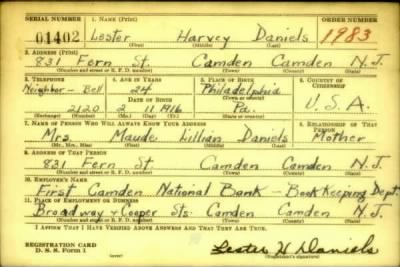 SERIAL NUMBER 1. NAME (Print) ORDER NUMBER
01402 Lester Harvey Daniels 1983
(First) (Middle) (Last)
2. ADDRESS (Print)
831 Fern St. Camden Camden N.J.
(Number and street or R. F. D. number) (Town) (County) (State)
3. TELEPHONE 4. AGE IN YEARS 5. PLACE OF BIRTH 6. COUNTRY OF CITIZENSHIP
Neighbor - Bell 24 Philadelphia
DATE OF BIRTH (Town or county) U.S.A.
2120 2 11 1916 Pa.
(Exchange) (Number) (Mo.) (Day) (Yr.) (State or country)
7. NAME OF PERSON WHO WILL ALWAYS KNOW YOUR ADDRESS 8. RELATIONSHIP OF THAT PERSON
Mrs. Maude Lillian Daniels Mother
(Mr., Mrs., Miss) (First) (Middle) (Last)
9. ADDRESS OF THAT PERSON
831 Fern St Camden Camden N.J.
(Number and street or R. F. D. number) (Town) (County) (State)
10. EMPLOYER'S NAME
First Camden National Bank - Book Keeping Dept.
11. PLACE OF EMPLOYMENT OR BUSINESS
Broadway & Cooper Sts. Camden Camden N.J.
(Number and street or R. F. D. number) (Town) (County) (State)
I AFFIRM THAT I HAVE VERIFIED ABOVE ANSWERS AND THAT THEY ARE TRUE.
REGISTRATION CARD
D. S. S. Form 1 (over) Lester H Daniels
(Registrant's signature)